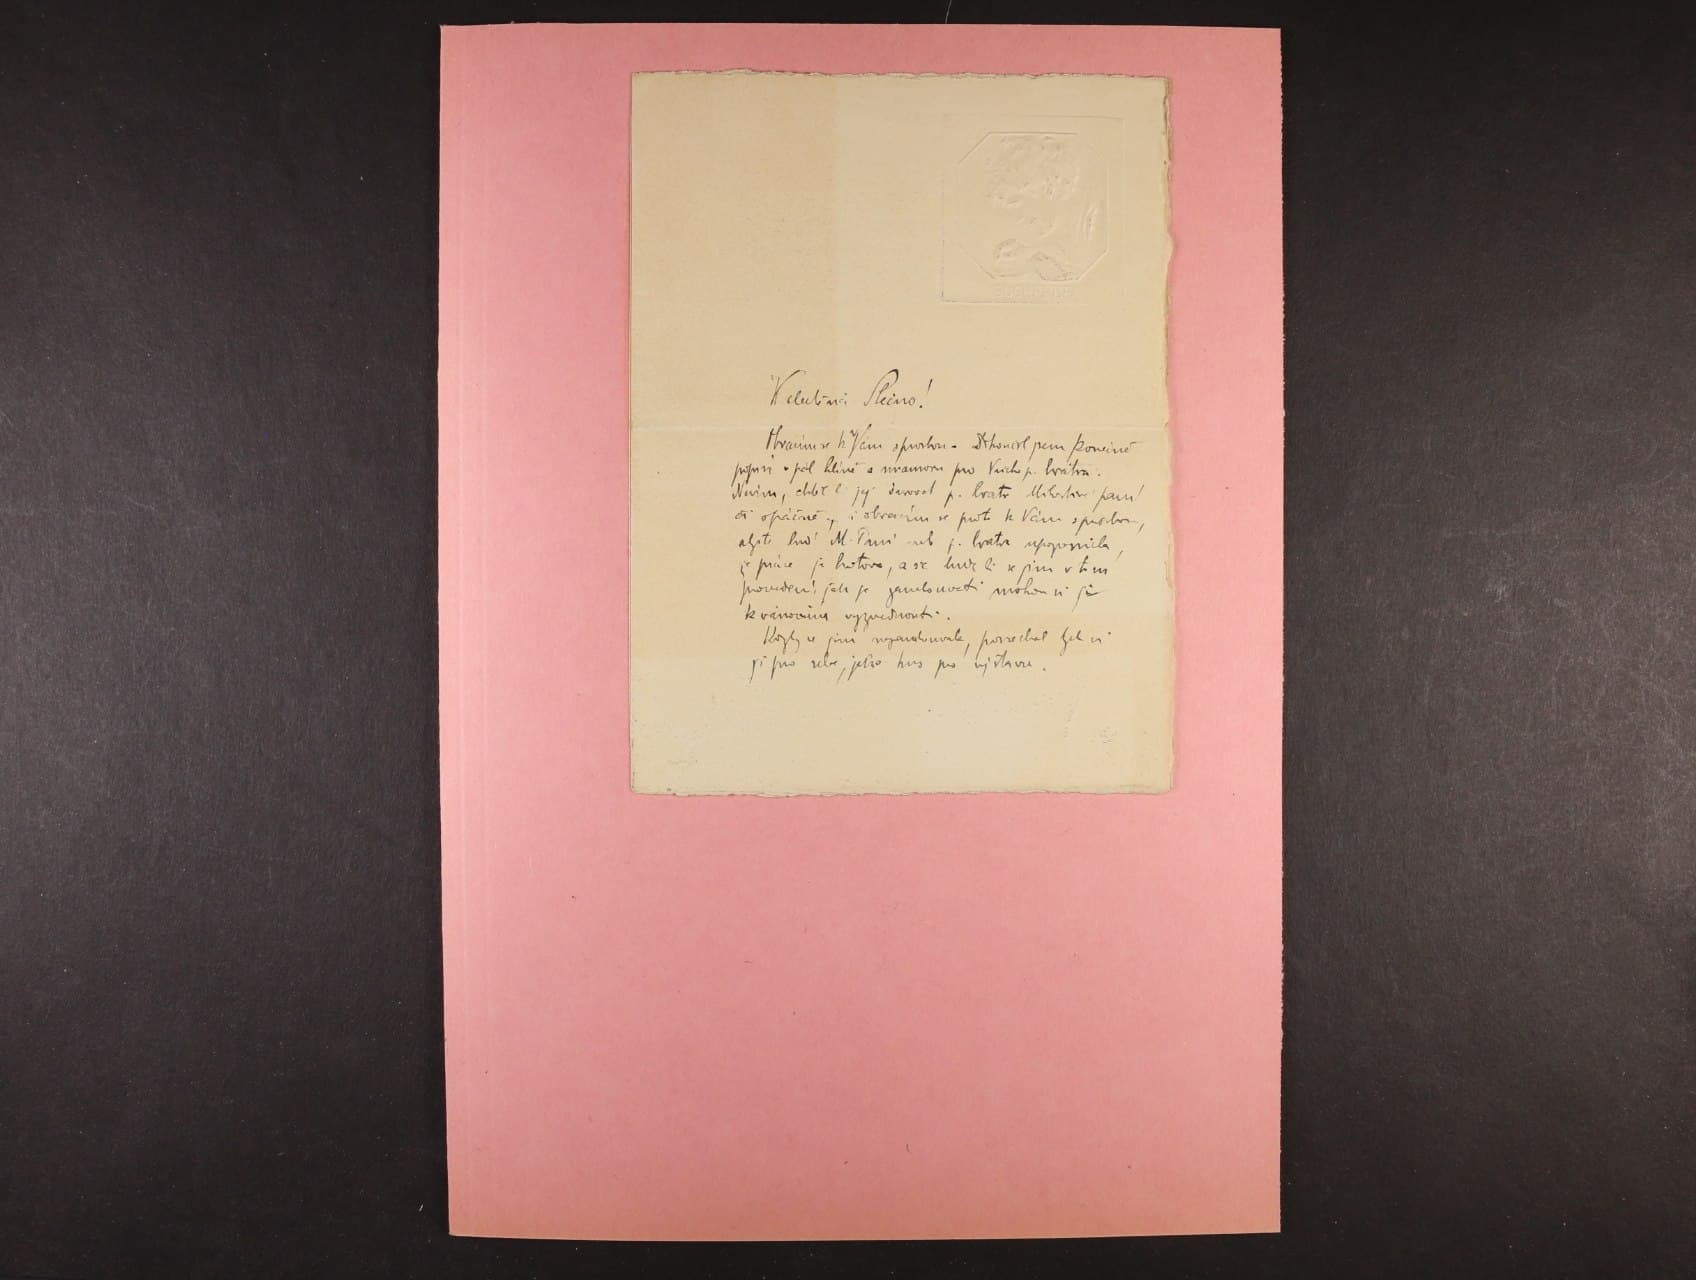 Velectěná Slečno!
Obracím se k Vám s prosbou. Dokončil jsem konečně
poprsí v pál. hlíně a mramoru pro Vašeho p. bratra.
Nevím, chtěl li jej darovat p. bratr Milostivé paní
či opáčně, i obracím se proto k Vám s prosbou,
abyste buď M. Paní neb p. bratra upozornila,
že práce je hotova, a že bude li se jim v tom
provedení jak je zamlouvati mohou si ji
k vánocům vyzvednouti.
Kdyby se jim nezamlouvala, ponechal bych si
ji pro sebe, jako kus pro výstavu.